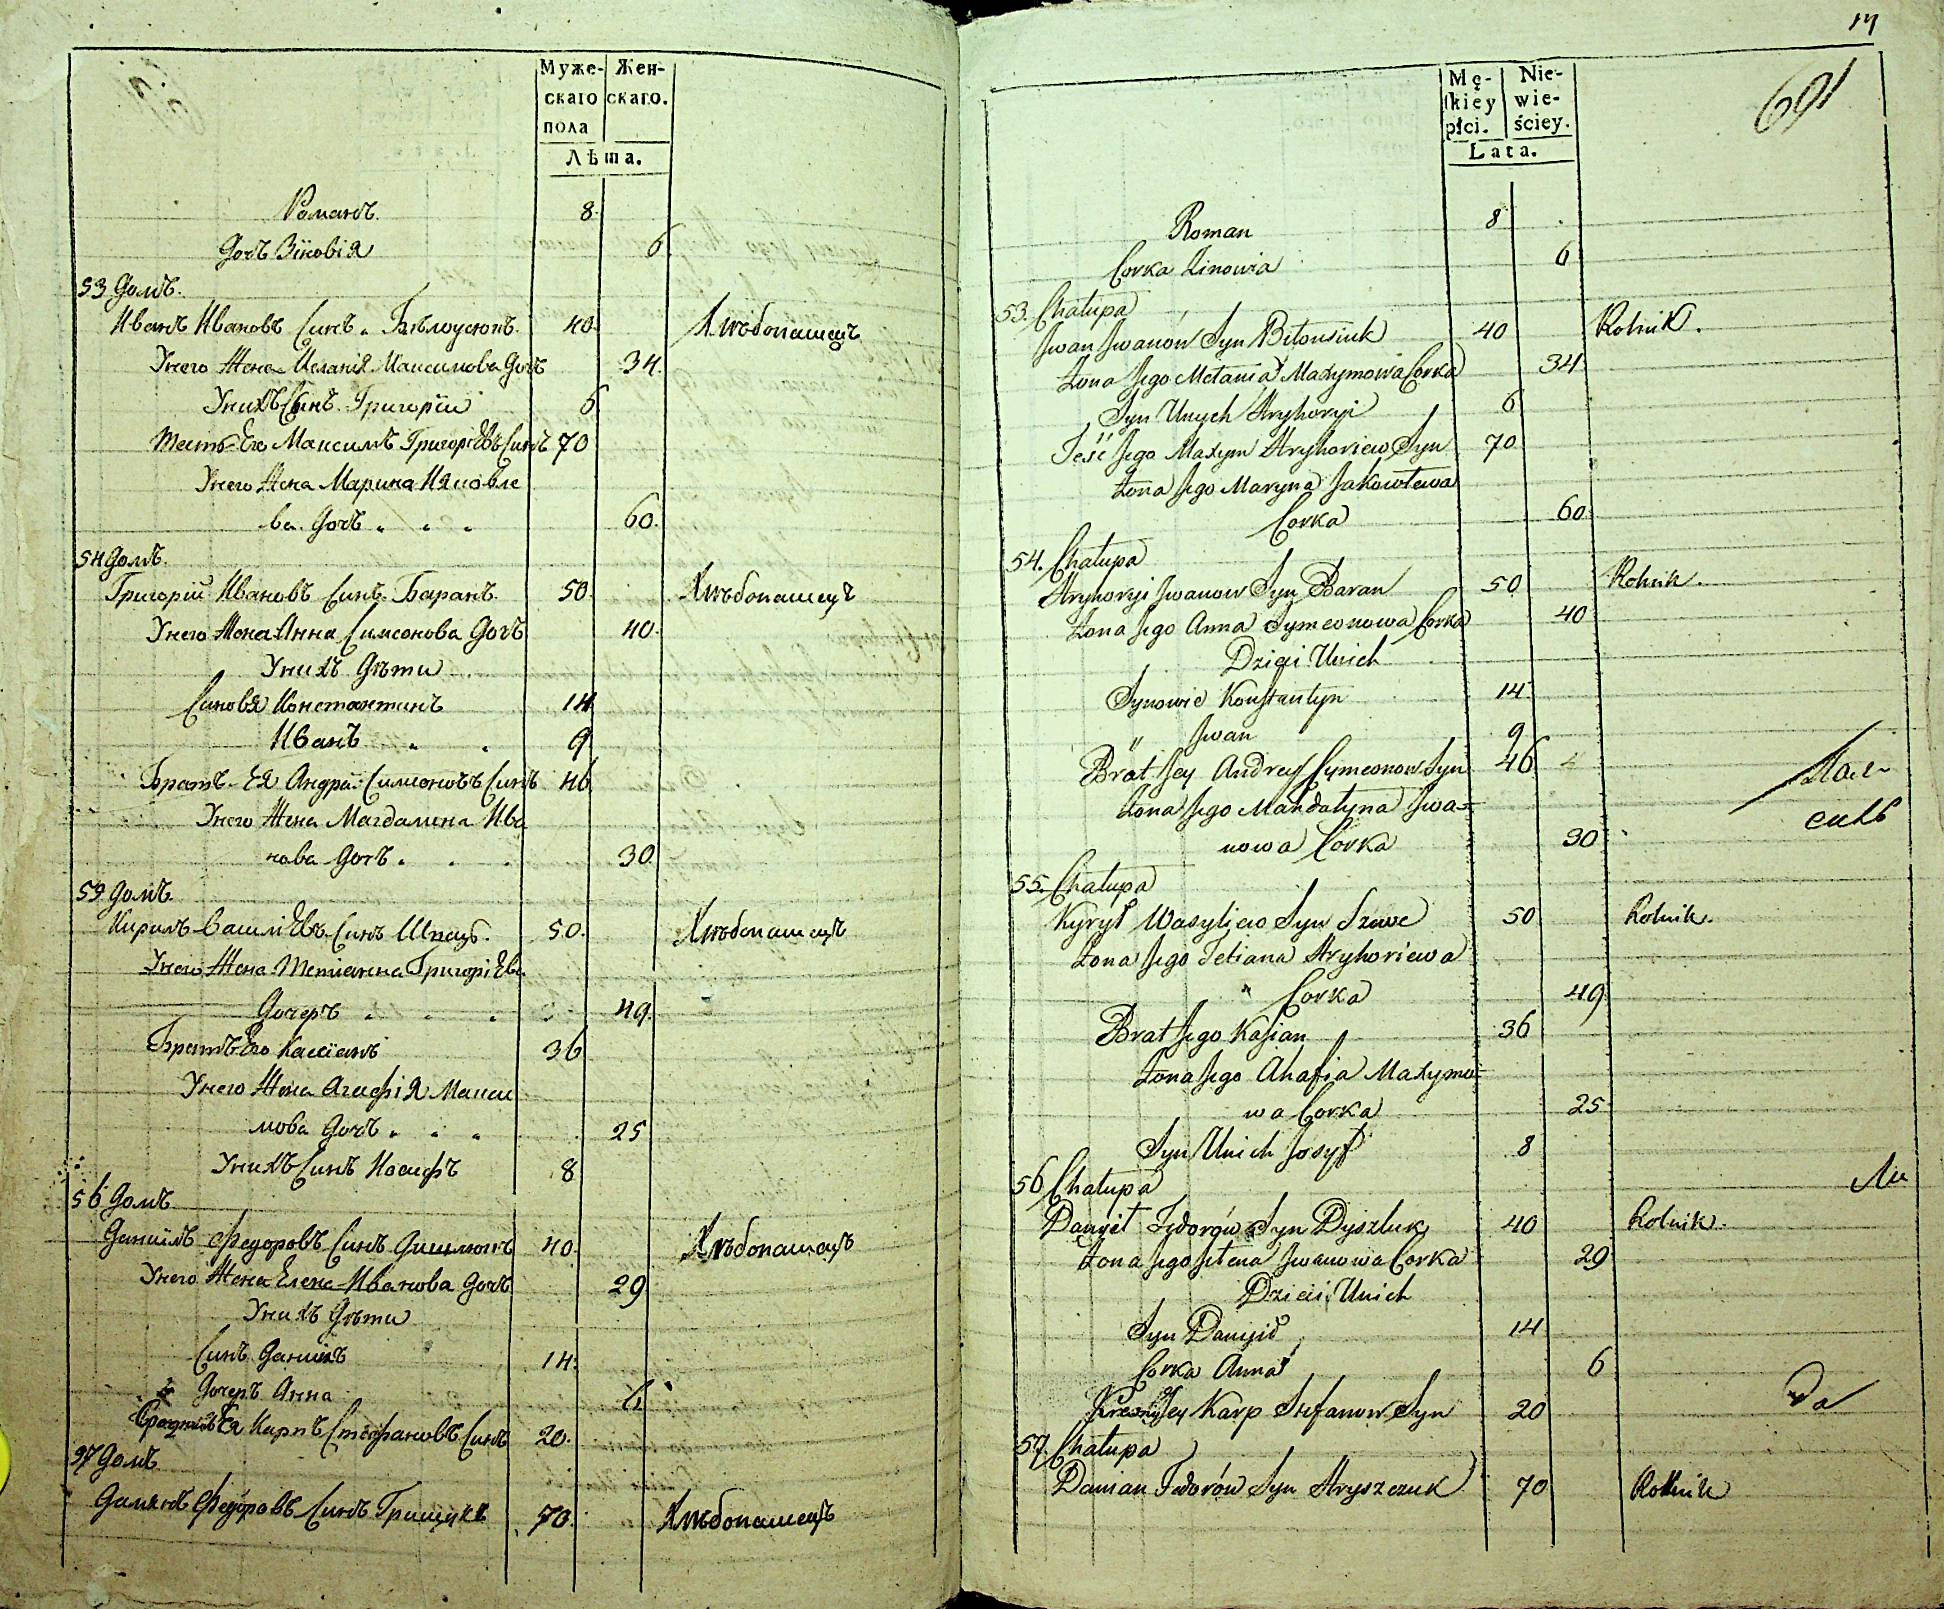 Муже-
скаго
пола
Жен-
скаго.
Лѣта.
Романъ. 8.
Дочъ Зѣновія 6.
53 Домъ.
Иванъ Ивановъ Синъ Бѣлоусюкъ. 40. Хлѣбопашецъ
Унего Жена Меланія Максимова Дочъ 34.
Унихъ Синъ Григорій 6
Тесть Его Максимъ Григоріевъ Синъ 70
Унего Жена Марина Яковле
ва Дочъ 60.
54 Домъ.
Григорій Ивановъ Синъ Баранъ. 50. Хлѣбопашецъ
Унего Жена Анна Симеонова Дочъ 40.
Унихъ Дѣти
Синовя Константинъ 14
Иванъ 9
Братъ Ея Андрей Симеоновъ Синъ 46
Унего Жена Магдалина Ива
нова Дочъ 30.
55 Домъ.
Кирилъ Василіевъ Синъ Швецъ. 50. Хлѣбопашецъ
Унего Жена Тетіанна Григоріева
Дочеръ 49.
Братъ Его Кассіанъ 36
Унего Жена Агафія Макси
мова Дочъ 25
Унихъ Синъ Иосифъ 8
56 Домъ
Даниилъ Федоровъ Синъ Дишлюкъ 40. Хлѣбопашецъ
Унего Жена Елена Иванова Дочъ 29
Унихъ Дѣти
Синъ Даниилъ 14.
Дочеръ Анна 6
Ея Карпъ Стефановъ Синъ 20.
57 Домъ
Даміянъ Федоровъ Синъ Грищукъ 70. Хлѣбопашецъ
691
Mę-
skiey
płci.
Nie-
wie-
ściey.
Lata.
Roman 8
Corka Zinowia 6
53. Chałupa
Jwan Jwanów Syn Biłousiuk 40 Rolnik.
Żona Jego Mełania Maxymowa Corka 34
Syn Unych Hryhoryi 6
Teść Jego Maxym Hryhoriew Syn 70
Żona Jego Maryna Jakowlewa
Corka 60
54. Chałupa
Hryhoryi Jwanow Syn Baran 50 Rolnik.
Żona Jego Anna Symeonowa Corka 40
Dzieci Unich
Synowie Konstantyn 14
" Jwan 9
Brat Jey Andrey Symeonow Syn 46
Żona Jego Mahdałyna Jwa=
nowa Corka 30
55. Chałupa
Kyrył Wasyliew Syn Szewc 50 Rolnik.
Żona Jego Tetiana Hryhoriewa
" Corka 49
Brat Jego Kasian 36
Żona Jego Ahafia Maxymo=
wa Corka 25
Syn Unich Josyf 8
56 Chałupa
Danyił Fedorów Syn Dyszluk 40 Rolnik.
Żona Jego Jełena Jwanowa Corka 29
Dzieci Unich
Syn Danyił 14
Corka Anna 6
Jey Karp Stefanow Syn 20
57. Chałupa
Damian Fedorów Syn Hryszczuk 70 Rolnik